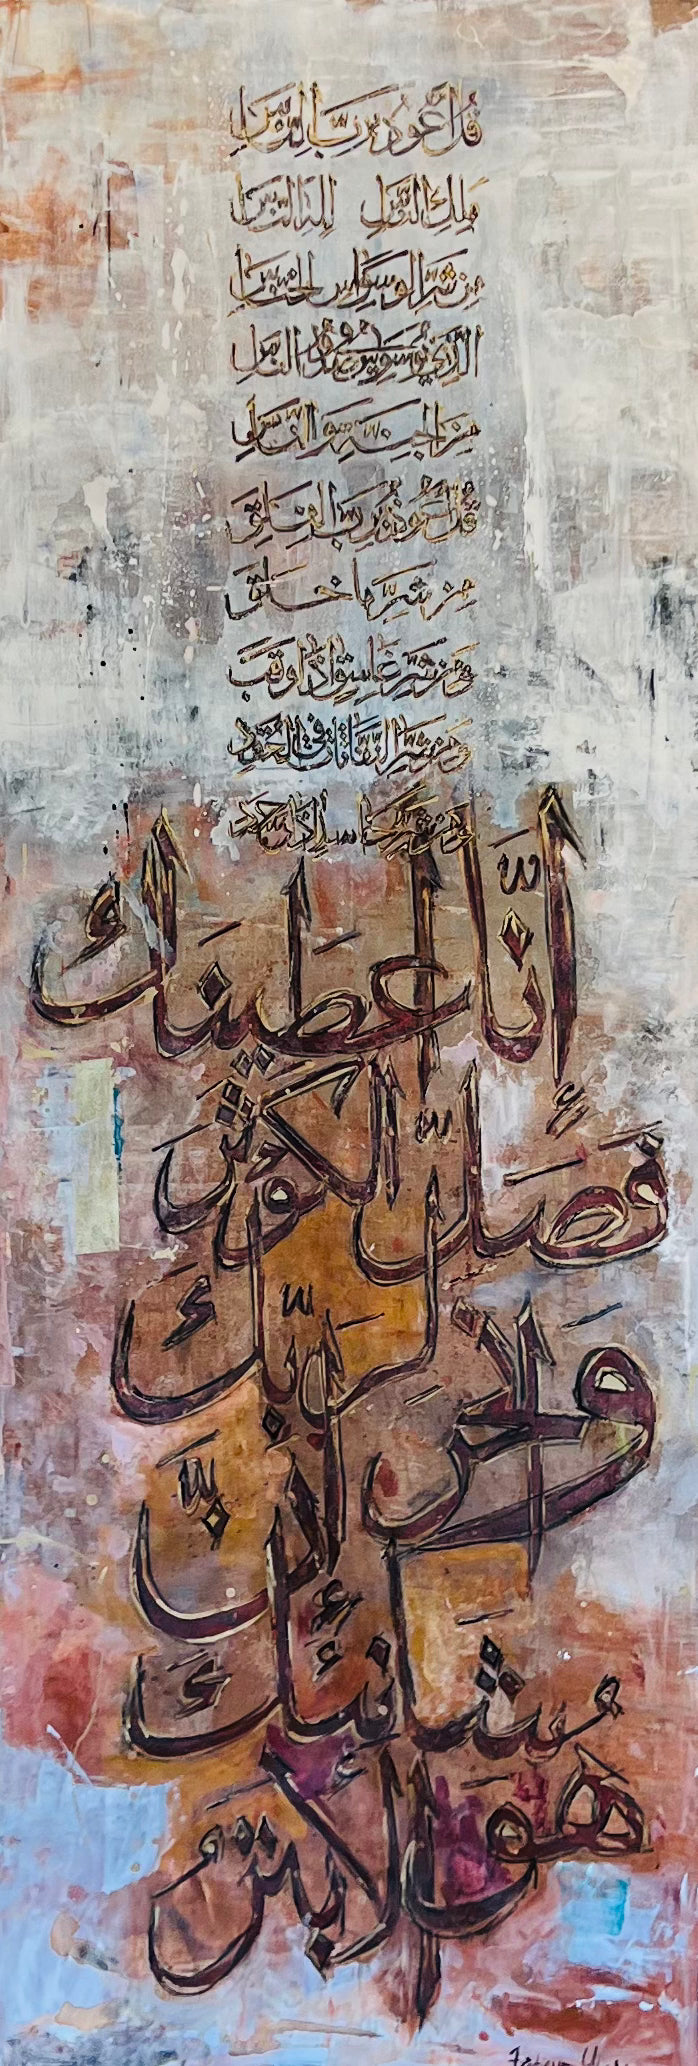 قُلْ أَعُوذُ بِرَبِّ النَّاسِ
مَلِكِ النَّاسِ إِلَٰهِ النَّاسِ
مِن شَرِّ الْوَسْوَاسِ الْخَنَّاسِ
الَّذِي يُوَسْوِسُ فِي صُدُورِ النَّاسِ
مِنَ الْجِنَّةِ وَالنَّاسِ
قُلْ أَعُوذُ بِرَبِّ الْفَلَقِ
مِن شَرِّ مَا خَلَقَ
وَمِن شَرِّ غَاسِقٍ إِذَا وَقَبَ
وَمِن شَرِّ النَّفَّاثَاتِ فِي الْعُقَدِ
وَمِن شَرِّ حَاسِدٍ إِذَا حَسَدَ
إِنَّا أَعْطَيْنَكَ
الْكَوْثَرَ
فَصَلِّ
لِرَبِّكَ
وَانْحَرْ
إِنَّ
شَانِئَكَ
هُوَ الْأَبْتَرُ